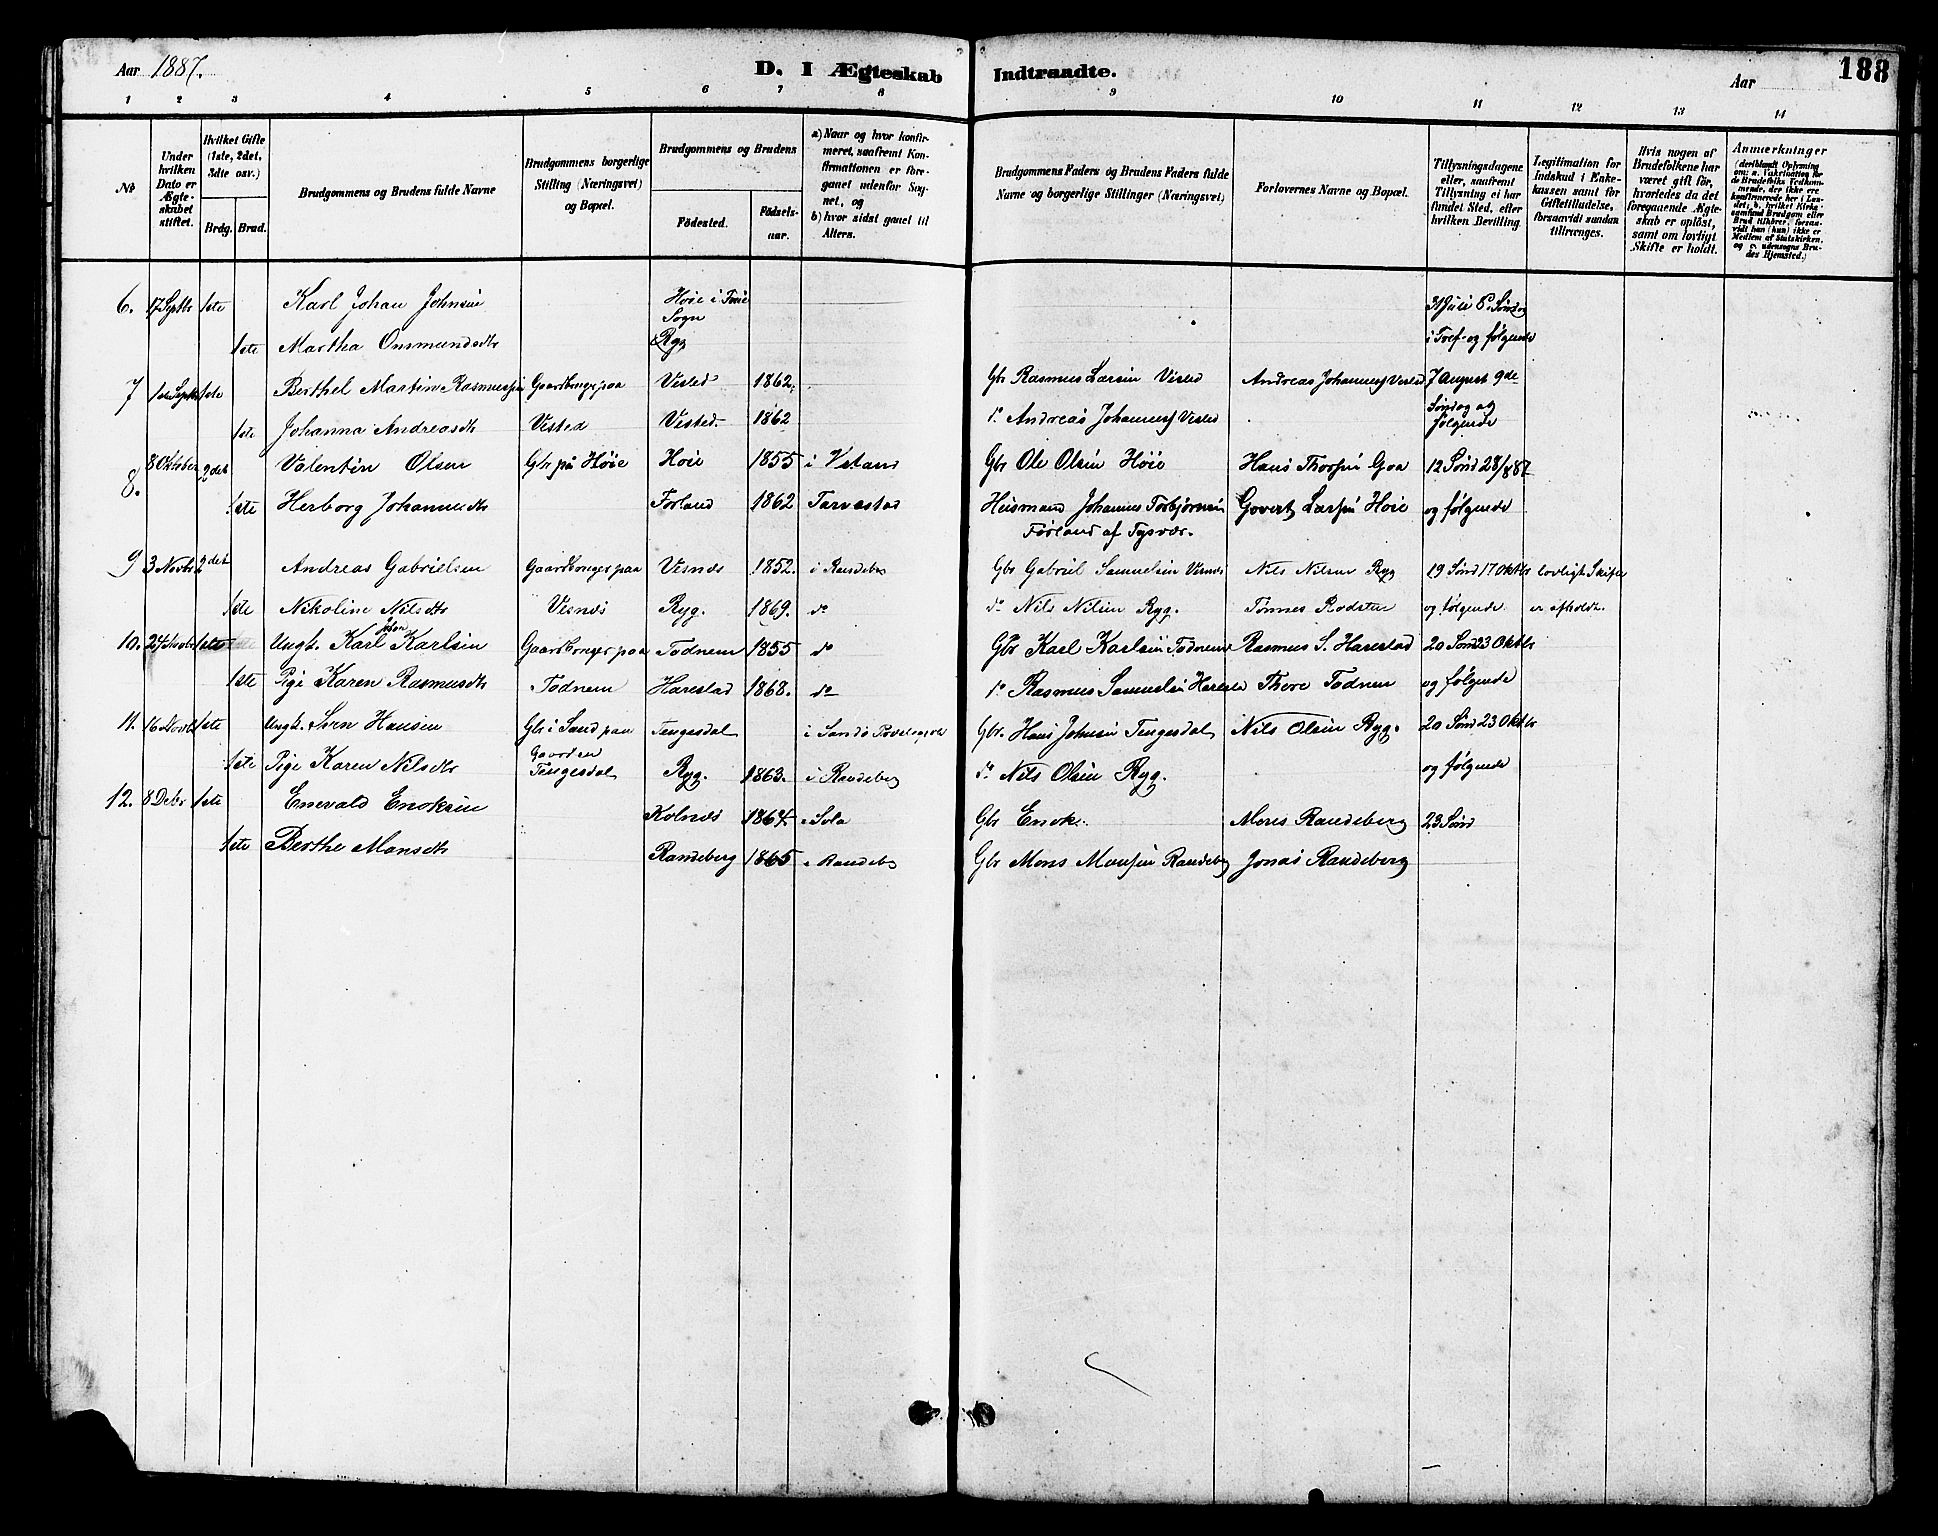 Aar 1887. D. I Ægteskab Indtraadte. Aar 188
1 2 3 4 5 6 7 8 9 10 11 12 13 14
№
Under hvilken Dato er Ægteskabet stiftet.
Hvilket Gifte (1ste, 2det, 3die osv.)
Brdg. Brud.
Brudgommens og Brudens fulde Navne
Brudgommens borgerlige Stilling (Næringsvei) og Bopæl.
Brudgommens og Brudens
Fødested. Fødselsaar.
a) Naar og hvor konfirmeret, saafremt Konfirmationen er foregaaet udenfor Sognet, og
b) hvor sidst gaaet til Alters.
Brudgommens Faders og Brudens Faders fulde Navne og borgerlige Stillinger (Næringsvei)
Forlovernes Navne og Bopæl.
Tillysningsdagene eller, saafremt Tillysning ei har fundet Sted, efter hvilken Bevilling.
Legitimation for Indskud i Enkekassen samt for Giftetilladelse, forsaavidt saadan tiltrænges.
Hvis nogen af Brudefolkene har været gift før, hvorledes da det foregaaende Ægteskab er opløst, samt om lovligt Skifte er holdt.
Anmærkninger
6. 17 Septbr 1ste Karl Johan Johnsen Høie i Sogn 31 Juli 8. Søndag
1ste Martha Ommundsdtr Ryg i Tref. og følgende
7 1ste Septbr 1ste Berthel Martin Rasmussen Gaardbruger paa Visted 1862. Gbr Rasmus Larsen Visted Andreas Johanness Visted 7 August 9de
1ste Johanna Andreasdtr Visted Visted. 1862 do Andreas Johanness Visted Søndag og følgende
8. 8 Oktober 2det Valentin Olsen Gbr på Høie Høie 1855 i Gbr Ole Olsen Høie Hans Thorsen Goa 12 Sønd 28/8 87
1ste Herborg Johannesdtr Førland 1862 Torvestad Huusmand Johannes Torbjørnsen Govert Larsen Høie og følgende
Førland af Tysvær.
9 3 Novbr 2det Andreas Gabrielsen Gaardbruger paa Visnæs 1852. i Randebg Gbr Gabriel Samuelsen Visnæs Nils Nilsen Ryg 19 Sønd 17 Oktbr lovligt Skifte
1ste Nikoline Nilsdtr Visnæs Ryg. 1869. do do Nils Nilsen Ryg. Tønnes og følgende er afholdt.
10. 24 Novbr 1ste Ungk. Karl Johan Karlsen Gaardbruger paa Todnem 1855 do Gbr Karl Karlsen Todnem Rasmus S. Harestad 20 Sønd 23 Oktbr
1ste Pige Karen Rasmusdtr Todnem Harestad 1868. do do Rasmus Samuelsen Harestad Thore Todnem og følgende
11. 16 Novbr 1ste Ungk. Sven Hansen Gbr i Sand paa Tengesdal i Sands Gbr. Hans Johnsen Tengesdal Nils Olsen Ryg. 20 Sønd 23 Oktbr
1ste Pige Karen Nilsdtr Gaarden Tengesdal Ryg. 1863. i Randeberg do Nils Olsen Ryg. og følgende
12. 8 Debr 1ste Enevald Enoksen Kolnæs 1864. Sola Gbr Enok Mons Randeberg 23 Sønd
1ste Berthe Monsdtr Randeberg 1865 Randebg Gbr Mons Monsen Randeberg Jonas Randeberg